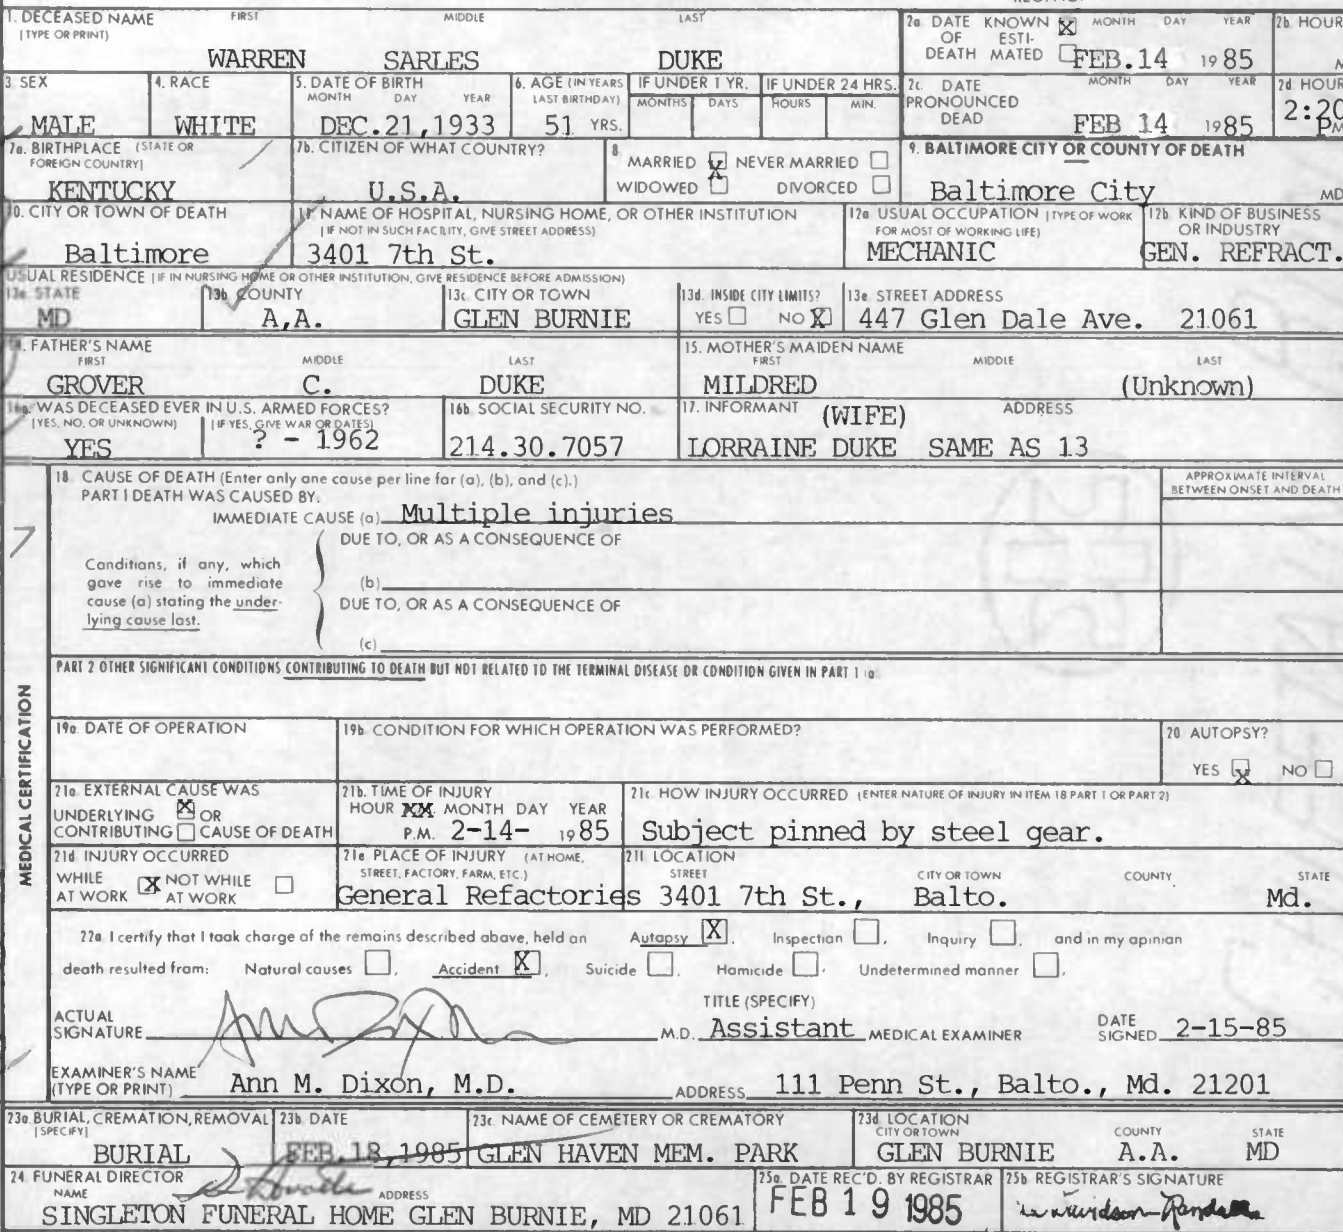 1. DECEASED NAME FIRST MIDDLE LAST
(TYPE OR PRINT)
WARREN SARLES DUKE
2a. DATE KNOWN X MONTH DAY YEAR
OF ESTI-
DEATH MATED FEB.14 1985
2b. HOUR
M
3. SEX
MALE
4. RACE
WHITE
5. DATE OF BIRTH
MONTH DAY YEAR
DEC.21,1933
6. AGE (IN YEARS
LAST BIRTHDAY)
51 YRS.
IF UNDER 1 YR.
MONTHS DAYS
IF UNDER 24 HRS.
HOURS MIN.
2c. DATE MONTH DAY YEAR
PRONOUNCED
DEAD FEB 14 1985
2d HOUR
2:20
PM
7a. BIRTHPLACE (STATE OR
FOREIGN COUNTRY)
KENTUCKY
7b. CITIZEN OF WHAT COUNTRY?
U.S.A.
8
MARRIED X NEVER MARRIED
WIDOWED DIVORCED
9. BALTIMORE CITY OR COUNTY OF DEATH
Baltimore City MD
10. CITY OR TOWN OF DEATH
Baltimore
11. NAME OF HOSPITAL, NURSING HOME, OR OTHER INSTITUTION
(IF NOT IN SUCH FACILITY, GIVE STREET ADDRESS)
3401 7th St.
12a USUAL OCCUPATION (TYPE OF WORK
FOR MOST OF WORKING LIFE)
MECHANIC
12b KIND OF BUSINESS
OR INDUSTRY
GEN. REFRACT.
USUAL RESIDENCE (IF IN NURSING HOME OR OTHER INSTITUTION, GIVE RESIDENCE BEFORE ADMISSION)
13a STATE
MD
13b COUNTY
A,A.
13c CITY OR TOWN
GLEN BURNIE
13d. INSIDE CITY LIMITS?
YES NO X
13e STREET ADDRESS
447 Glen Dale Ave. 21061
14. FATHER'S NAME
FIRST MIDDLE LAST
GROVER C. DUKE
15. MOTHER'S MAIDEN NAME
FIRST MIDDLE LAST
MILDRED (Unknown)
16a. WAS DECEASED EVER IN U.S. ARMED FORCES?
(YES, NO, OR UNKNOWN) (IF YES, GIVE WAR OR DATES)
YES ? - 1962
16b SOCIAL SECURITY NO.
214.30.7057
17. INFORMANT (WIFE) ADDRESS
LORRAINE DUKE SAME AS 13
MEDICAL CERTIFICATION
7
18 CAUSE OF DEATH (Enter only one cause per line for (a), (b), and (c).)
PART I DEATH WAS CAUSED BY.
IMMEDIATE CAUSE (a) Multiple injuries
APPROXIMATE INTERVAL
BETWEEN ONSET AND DEATH
DUE TO, OR AS A CONSEQUENCE OF
Conditions, if any, which
gave rise to immediate
cause (a) stating the under-
lying cause last.
(b)
DUE TO, OR AS A CONSEQUENCE OF
(c)
PART 2 OTHER SIGNIFICANT CONDITIONS CONTRIBUTING TO DEATH BUT NOT RELATED TO THE TERMINAL DISEASE OR CONDITION GIVEN IN PART 1 (a)
19a. DATE OF OPERATION
19b. CONDITION FOR WHICH OPERATION WAS PERFORMED?
20 AUTOPSY?
YES X NO
21a. EXTERNAL CAUSE WAS
UNDERLYING X OR
CONTRIBUTING CAUSE OF DEATH
21b. TIME OF INJURY
HOUR XX MONTH DAY YEAR
P.M. 2-14- 1985
21c. HOW INJURY OCCURRED (ENTER NATURE OF INJURY IN ITEM 18 PART 1 OR PART 2)
Subject pinned by steel gear.
21d INJURY OCCURRED
WHILE X NOT WHILE
AT WORK AT WORK
21e PLACE OF INJURY (AT HOME,
STREET, FACTORY, FARM, ETC.)
General Refactories
21f LOCATION
STREET CITY OR TOWN COUNTY STATE
3401 7th St., Balto. Md.
22a I certify that I took charge of the remains described above, held an Autopsy X, Inspection , Inquiry , and in my opinion
death resulted from: Natural causes , Accident X, Suicide , Homicide , Undetermined manner .
TITLE (SPECIFY)
ACTUAL
SIGNATURE Ann Dixon M.D. Assistant MEDICAL EXAMINER
DATE
SIGNED 2-15-85
EXAMINER'S NAME
(TYPE OR PRINT) Ann M. Dixon, M.D. ADDRESS 111 Penn St., Balto., Md. 21201
23a. BURIAL, CREMATION, REMOVAL
(SPECIFY)
BURIAL
23b. DATE
FEB.18,1985
23c. NAME OF CEMETERY OR CREMATORY
GLEN HAVEN MEM. PARK
23d LOCATION
CITY OR TOWN COUNTY STATE
GLEN BURNIE A.A. MD
24 FUNERAL DIRECTOR
NAME ADDRESS
SINGLETON FUNERAL HOME GLEN BURNIE, MD 21061
25a. DATE REC'D. BY REGISTRAR
FEB 19 1985
25b REGISTRAR'S SIGNATURE
Davidson Randall